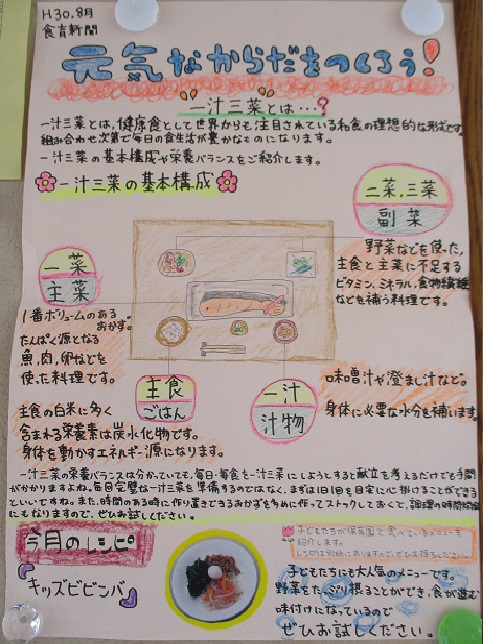 H30.8月
食育新聞
元気なからだをつくろう!
一汁三菜とは…?
一汁三菜とは、健康食として世界からも注目されている和食の理想的な形式です。
組み合わせ次第で毎日の食生活が豊かなものになります。
一汁三菜の基本構成や栄養バランスをご紹介します。
一汁三菜の基本構成
二菜、三菜
副菜
野菜などを使った、
主食と主菜に不足する
ビタミン、ミネラル、食物繊維
などを補う料理です。
一菜
主菜
1番ボリュームのある
おかず。
たんぱく源となる
魚、肉、卵などを
使った料理です。
主食
ごはん
主食の白米に多く
含まれる栄養素は炭水化物です。
身体を動かすエネルギー源になります。
一汁
汁物
味噌汁や澄まし汁など。
身体に必要な水分を補います。
一汁三菜の栄養バランスは分かっていても、毎日・毎食を一汁三菜にしようとすると献立を考えるだけでも手間
がかかりますよね。毎回完璧な一汁三菜を準備するのではなく、まずは1日1回を目安に心掛けることができると
いいですね。また、時間のある時に作り置きできるおかずを多めに作ってストックしておくと、調理の時間短縮
にもなりますので、ぜひお試しください。
今月のレシピ
『キッズビビンバ』
子どもたちが保育園で食べているメニューを
紹介します。
レシピは別紙にありますので、ぜひお持ちください。
子どもたちにも大人気のメニューです。
野菜をたっぷり摂ることができ、食が進む
味付けになっているので
ぜひお試しください。